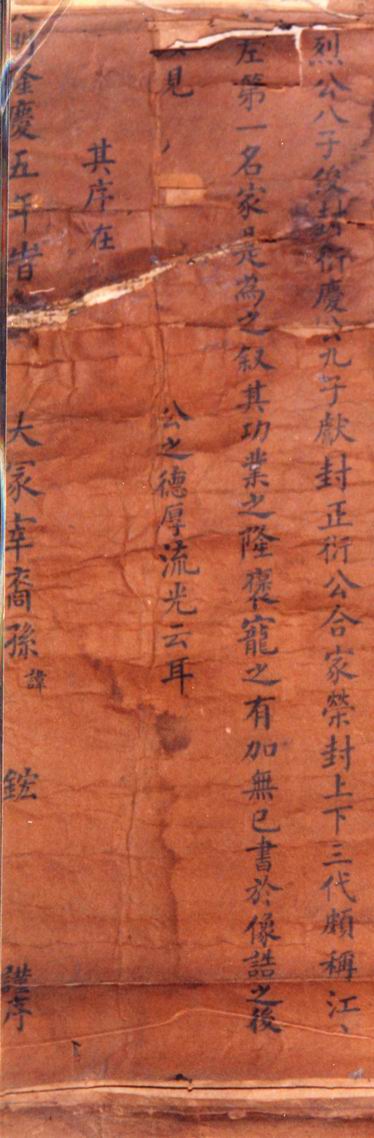 烈公八子後封衍慶公九子獻封正衍公合家榮封上下三代頗稱江
左第一名家是為之叙其功業之隆褒寵之有加無已書於像誥之後
見 公之德厚流光云耳
其序在
隆慶五年 大冢宰裔孫諱鋐 謹序